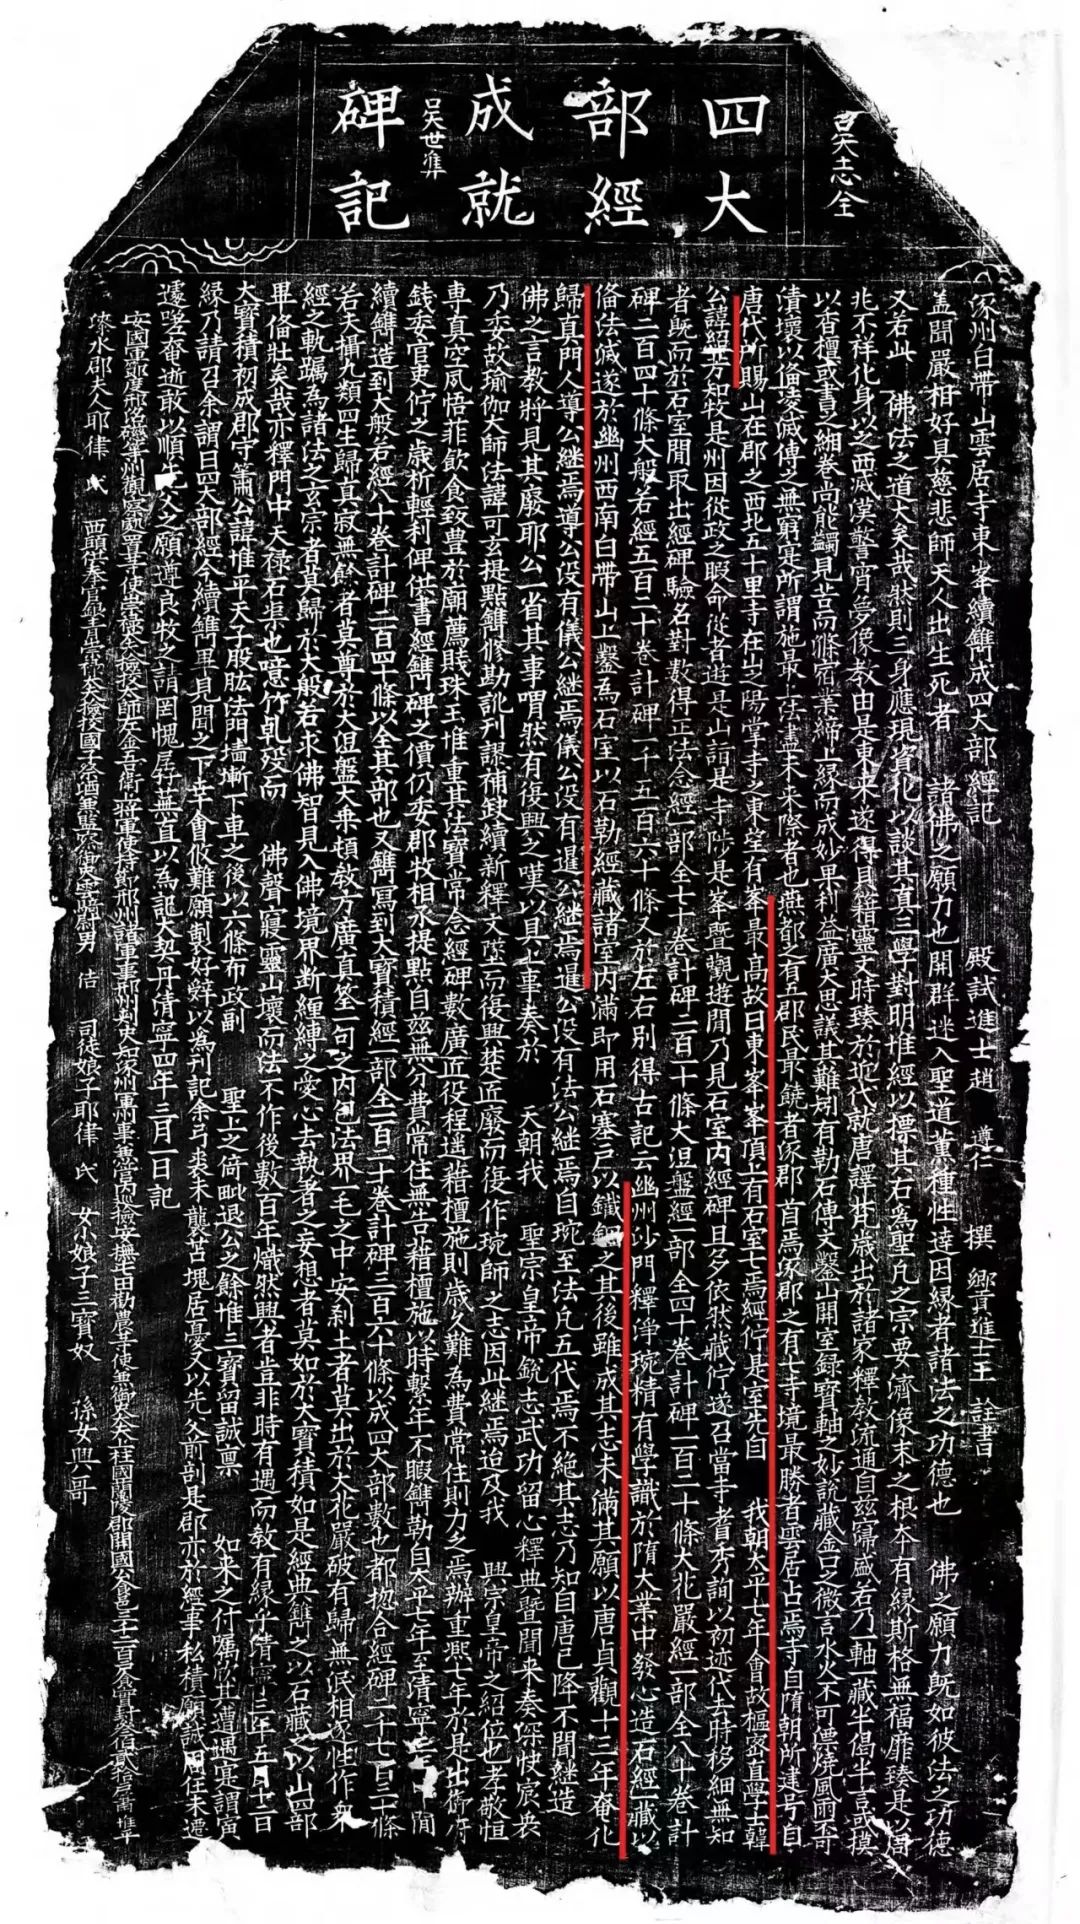 吴志全
四大
部經
成就
吴世准
碑記
涿州白帶山雲居寺東峯續鐫成四大部經記 殿試進士趙 遵仁 撰 鄉貢進士王 詮書
蓋聞嚴相好具慈悲師天人出生死者 諸佛之願力也開群迷入聖道萬種性達因緣者諸法之功德也 佛之願力既如彼法之功德
又若此 佛法之道大矣哉然則三身應現皆化以談其真三學對明堆經以標其右為聖凡之宗要濟像末之根本有緣斯格無福靡臻是以周
兆不祥化身以之西滅漢警宵夢像教由是東來遂得貝籍靈文時臻於近代就唐譯梵歲出於諸家釋教流通自茲霈盛若乃一軸一藏半偈半言或摸
以香檀或書之緗卷尚能蠲見苦而滌宿業締上緣而成妙果利益廣大思議其難矧有勒石傳文鑿山開室錄寶軸之妙說藏金口之微言水火不可漂燒風雨不可
漬壞以備凌滅傳之無窮是所謂施最上法盡未來際者也燕都之有五郡民最饒者涿郡 首焉涿郡之有七寺境最勝者雲居占焉寺自隋朝所建号自
唐代所賜山在郡之西北五十里寺在山之陽掌寺之東望有峯最高故曰東峯峯頂上有石室七焉經貯是室先自 我朝太平七年會故樞密直學士韓
公諱紹芳知牧是州因從政之暇命從者遊是山詣是寺陟是峯暨觀遊間乃見石室內經碑且多依然藏佇遂召當寺耆秀詢以初迹代去時移細無知
者既而於石室間取出經碑驗名對數得正法念經一部全七十卷計碑二百一十條大涅盤經一部全四十卷計碑一百二十條大花嚴經一部全八十卷計
碑二百四十條大般若經五百二十卷計碑一千五百六十條又於左右別得古記云幽州沙門釋淨琬精有學識於隋大業中發心造石經一藏以
備法滅遂於幽州西南白帶山上鑿為石室以石勒經藏諸室內滿即用石塞戶以鐵錮之其後雖成其志未滿其願以唐貞觀十三年奄化
歸真門人導公繼焉導公沒有儀公繼焉儀公沒有暹公繼焉暹公沒有法公繼焉自琬至法凡五代焉不絕其志乃知自唐已降不聞繼造
佛之言教將見其廢耶公一省其事喟然有復興之嘆以具上事奏於 天朝我 聖宗皇帝銳志武功留心釋典暨聞來奏深快宸衷
乃委故瑜伽大師法諱可玄提點鐫修勘訛刊謬補缺續新釋文墜而復興楚匠廢而復作琬師之志因此繼焉迨及我 興宗皇帝之紹位也孝敬恒
專真空夙悟菲飲食致豊於廟薦賤珠玉惟重其法寶常念經碑數廣匠役程遥藉檀施則歲久難為費常住則力乏焉辦重熙七年於是出御府
錢委官吏佇之歲析輕利俾供書經鐫碑之價仍委郡牧相承提點自茲無分費常住無告藉檀施以時繫年不暇鐫勒自太平七年至清寧三年 間
續鐫造到大般若經八十卷計碑二百四十條以全其部也又鐫寫到大寶積經一部全一百二十卷計碑三百六十條以成四大部數也都揔合經碑二千七百三十條
若夫攝九類四生歸真寂無餘者莫尊於大涅盤大乗頓教方廣真筌一句之內包法界一毛之中安剎土者莫出於大花嚴破有歸無泯相遂性作衆
經之軌躅為諸法之玄宗者其歸於大般若求佛智見入佛境界斷纏縛之愛心去執著之妄想者莫如於大寶積如是經典鐫之以石藏之以山四部
畢備壯矣哉亦釋門中天祿石渠也噫竹乹歿而 佛聲寢靈山壞而法不作後數百年熾然興者豈非時有遇而教有緣乎清寧三年五月十二日
大寶積初成郡守蕭公諱惟平天子股肱法門墻塹下車之後以六條布政副 聖上之倚毗退公之餘惟三寶留誠稟 如來之付囑欣其遭遇寔謂宿
緣乃請召余謂曰四大部經今續鐫畢見聞之下幸會攸難願製好辭以為刊記余弓裘未襲苫塊居憂又以先父前剖是郡亦於經事私積願誠自任未遷
遽嗟奄逝敢以順先父之願遵良牧之請罔愧孱蕪直以為記大契丹清寧四年三月一日記
安國軍節度邢洺磁等州觀察處置等使崇祿大夫檢校太師右金吾衛上將軍使持節邢州諸軍事邢州刺史知涿州軍州事兼管內巡檢安撫屯田勸農等使兼御史大夫上柱國蘭陵郡開國公食邑三千二百戶食實封叁佰貳拾戶蕭惟平
漆水郡夫人耶律 氏 男 佶 司徒娘子耶律 氏 女小娘子三寶奴 孫女興哥